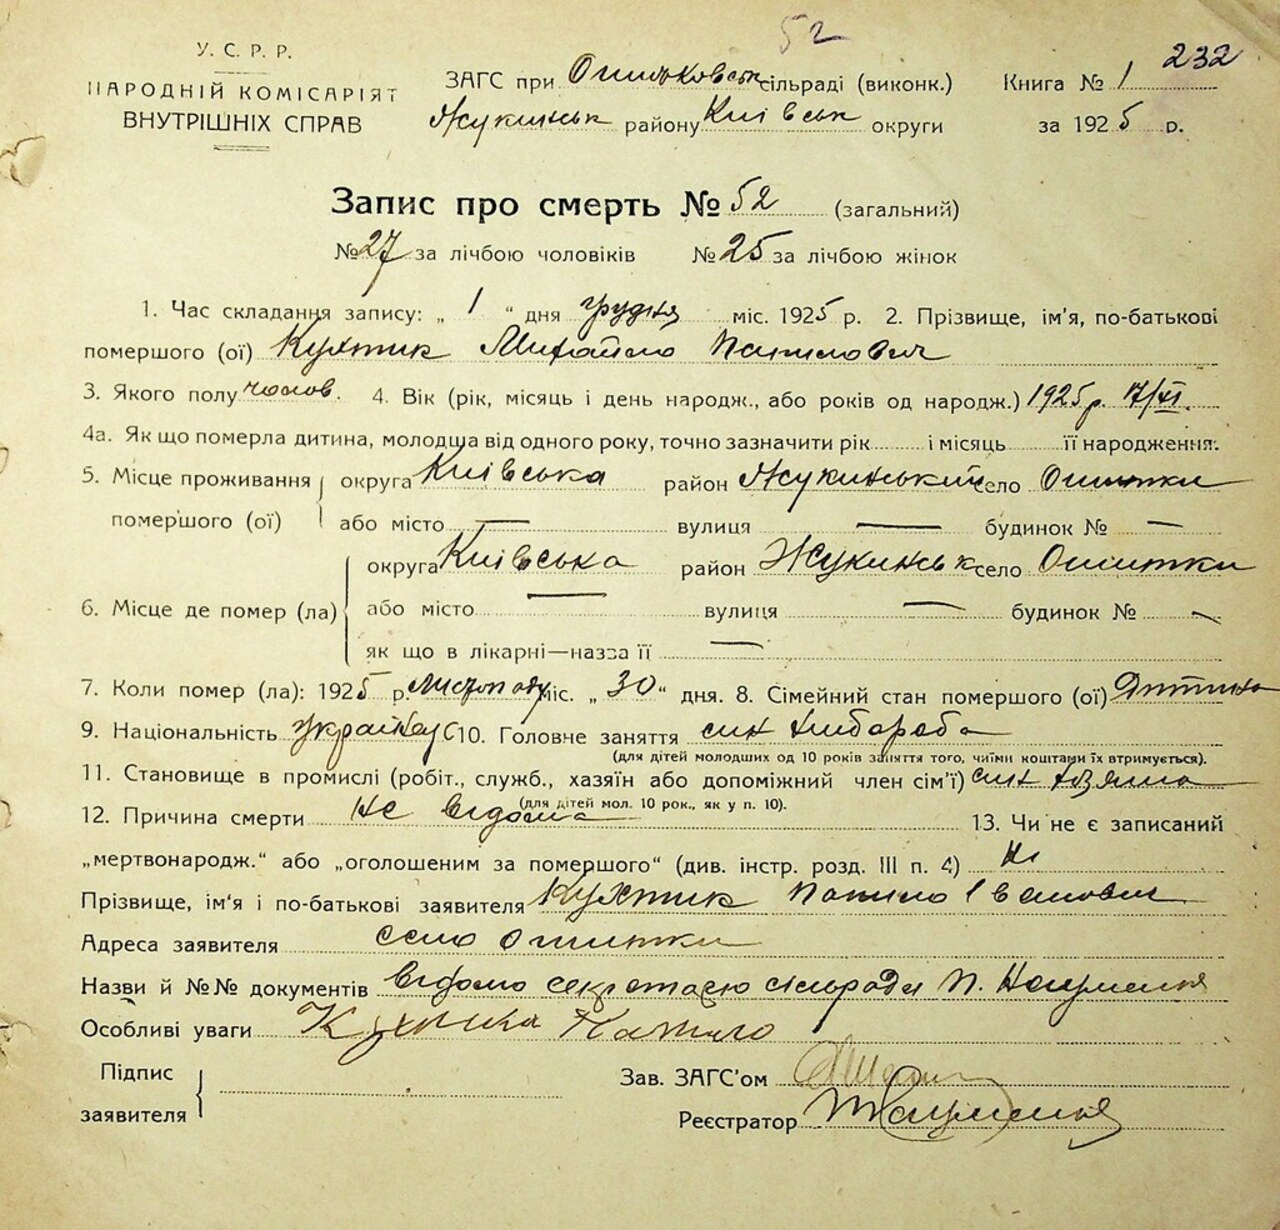 52
232
У. С. Р. Р.
НАРОДНІЙ КОМІСАРІЯТ
ВНУТРІШНІХ СПРАВ
ЗАГС при Ошитковськ сільраді (виконк.)
Жукинськ району Київськ округи
Книга № 1
за 1925 р.
Запис про смерть № 52 (загальний)
№ 27 за лічбою чоловіків № 25 за лічбою жінок
1. Час складання запису: „ 1 “ дня грудня міс. 1925 р. 2. Прізвище, ім'я, по-батькові
помершого (ої) Кухтик Михайло Панилович
3. Якого полу чолов. 4. Вік (рік, місяць і день народж., або років од народж.) 1925 р. 17/XI.
4а. Як що померла дитина, молодша від одного року, точно зазначити рік і місяць її народження:
5. Місце проживання помершого (ої) округа Київська район Жукинський село Ошитки
або місто — вулиця — будинок № —
6. Місце де помер (ла) округа Київська район Жукинськ село Ошитки
або місто — вулиця — будинок № —
як що в лікарні—назва її —
7. Коли помер (ла): 1925 р. Листопаду міс. „ 30 “ дня. 8. Сімейний стан помершого (ої) Дитина
9. Національність Українец 10. Головне заняття син хлібороба
(для дітей молодших од 10 років заняття того, чиїми коштами їх втримується).
11. Становище в промислі (робіт., служб., хазяїн або допоміжний член сім'ї) син хазяїна
(для дітей мол. 10 рок., як у п. 10).
12. Причина смерти не відома 13. Чи не є записаний
„мертвонародж.“ або „оголошеним за помершого“ (див. інстр. розд. III п. 4) Ні
Прізвище, ім'я і по-батькові заявителя Кухтик Іванович
Адреса заявителя село Ошитки
Назви й №№ документів відомо секретарю сільради П. Науменко
Особливі уваги Кухтика
Підпис заявителя
Зав. ЗАГС'ом
Реєстратор Науменко